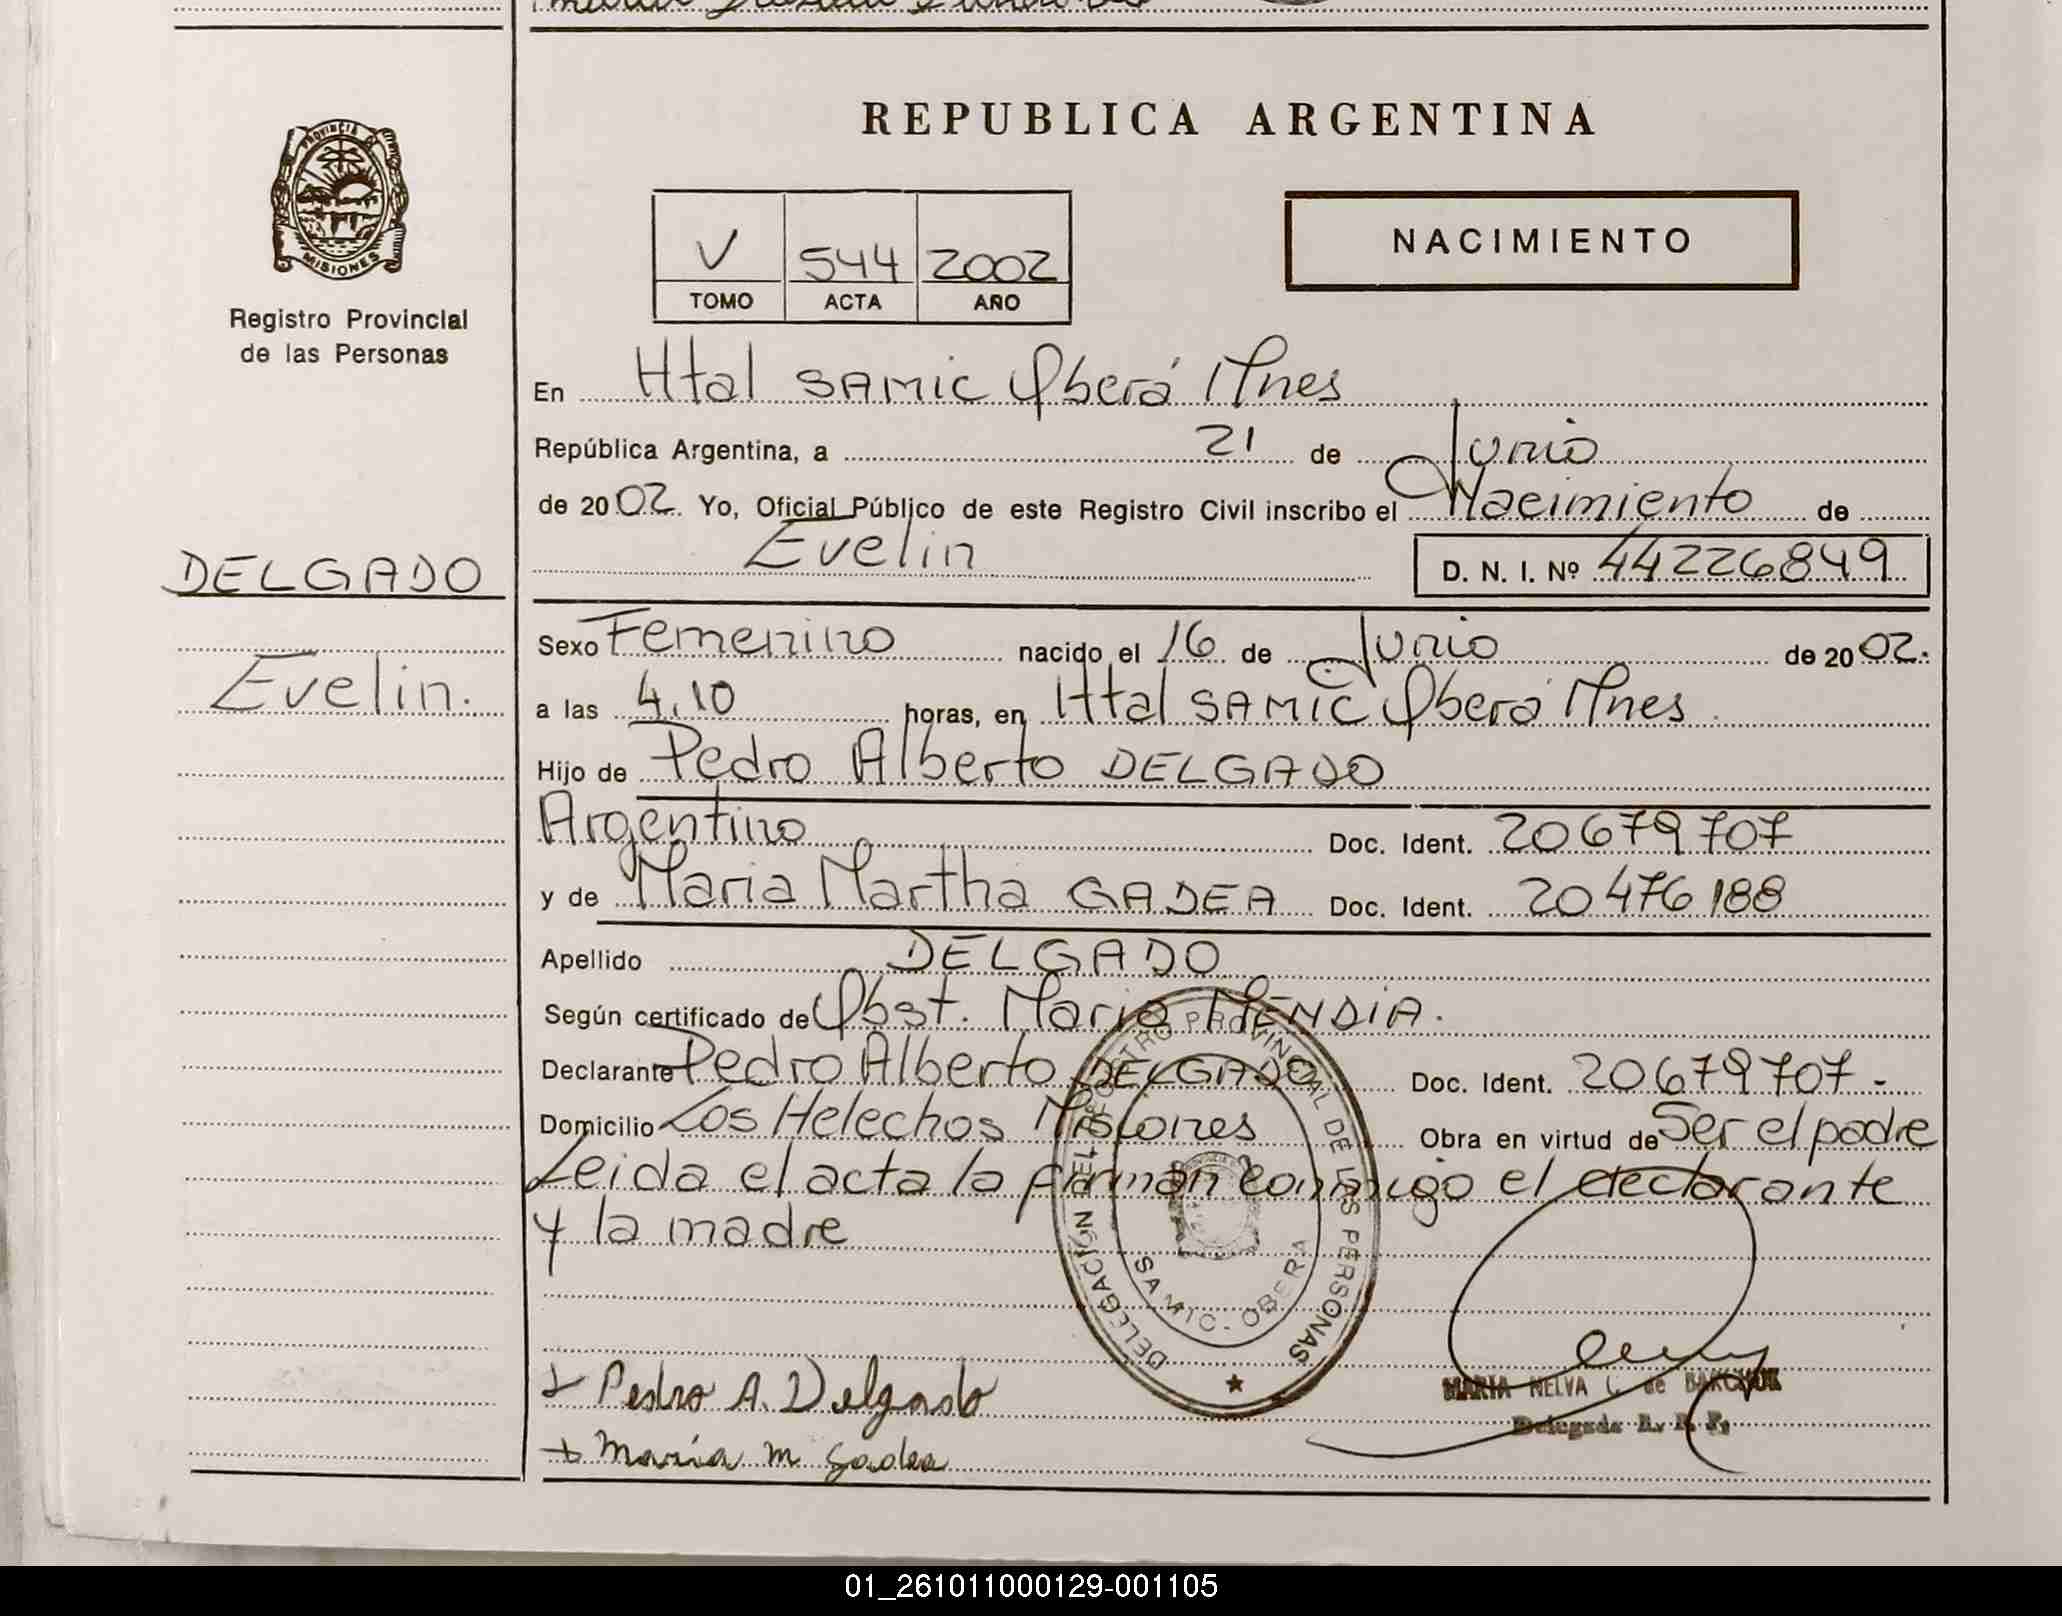 REPUBLICA ARGENTINA
PROVINCIA D
MISIONES
Registro Provincial
de las Personas
V 544 2002
TOMO ACTA AÑO
NACIMIENTO
En Htal SAMIC Oberá Mnes
República Argentina, a 21 de Junio
de 2002. Yo, Oficial Público de este Registro Civil inscribo el Nacimiento de
Evelin D. N. I. Nº 44226849
DELGADO
Evelin.
Sexo Femenino nacido el 16 de Junio de 2002.
a las 4.10 horas, en Htal SAMIC Oberá Mnes
Hijo de Pedro Alberto DELGADO
Argentino Doc. Ident. 20679707
y de Maria Martha GADEA Doc. Ident. 20476188
Apellido DELGADO
Según certificado de Obst. Maria MENDIA.
Declarante Pedro Alberto DELGADO Doc. Ident. 20679707-
Domicilio Los Helechos Misiones Obra en virtud de Ser el padre
Leida el acta la firman conmigo el declarante
y la madre
DELEGACIÓN DEL REGISTRO PROVINCIAL DE LAS PERSONAS
SAMIC - OBERA
+ Pedro A. Delgado
+ María M Gadea
MARIA NELVA C. de
Delegada R. P. P.
01_261011000129-001105